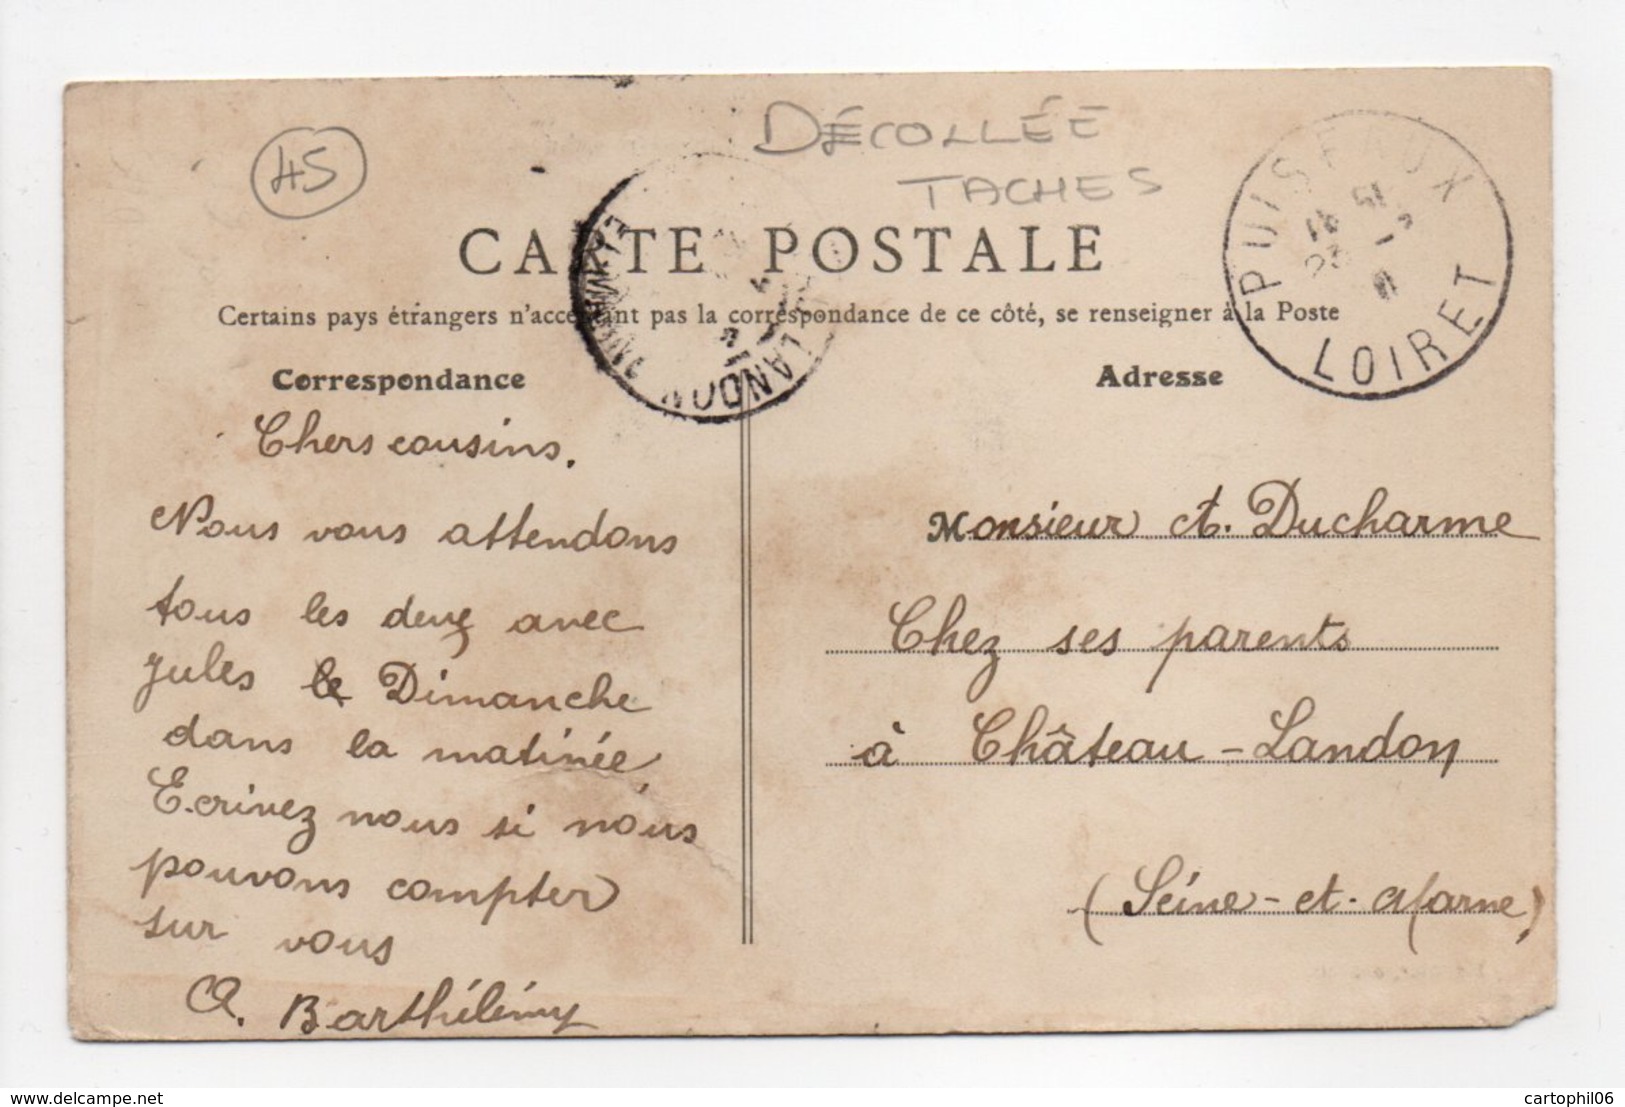 45
DÉCOLLÉE
TACHES
PUISEAUX
LOIRET
CARTE POSTALE
Certains pays étrangers n'acceptant pas la correspondance de ce côté, se renseigner à la Poste
LANDON
Correspondance
Chers cousins.
Nous vous attendons
tous les deux avec
Jules le Dimanche
dans la matinée
Ecrivez nous si nous
pouvons compter
sur vous
A. Barthélémy
Adresse
Monsieur A. Ducharme
Chez ses parents
à Château-Landon
(Seine-et-Marne)
www.delcampe.net
cartophil06